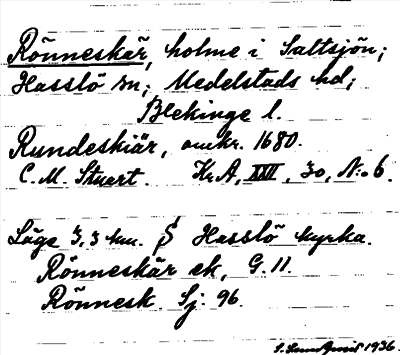 Rönneskär, holme i Saltsjön;
Hasslö sn; Medelstads hd;
Blekinge l.
Rundeskiär, omkr. 1680.
C. M. Stuart. Kr. A, XXVI, 30, No 6.
Läge 3,3 km. S Hasslö kyrka.
Rönneskär ek, G. 11.
Rönnesk. Sj. 96.
1936.